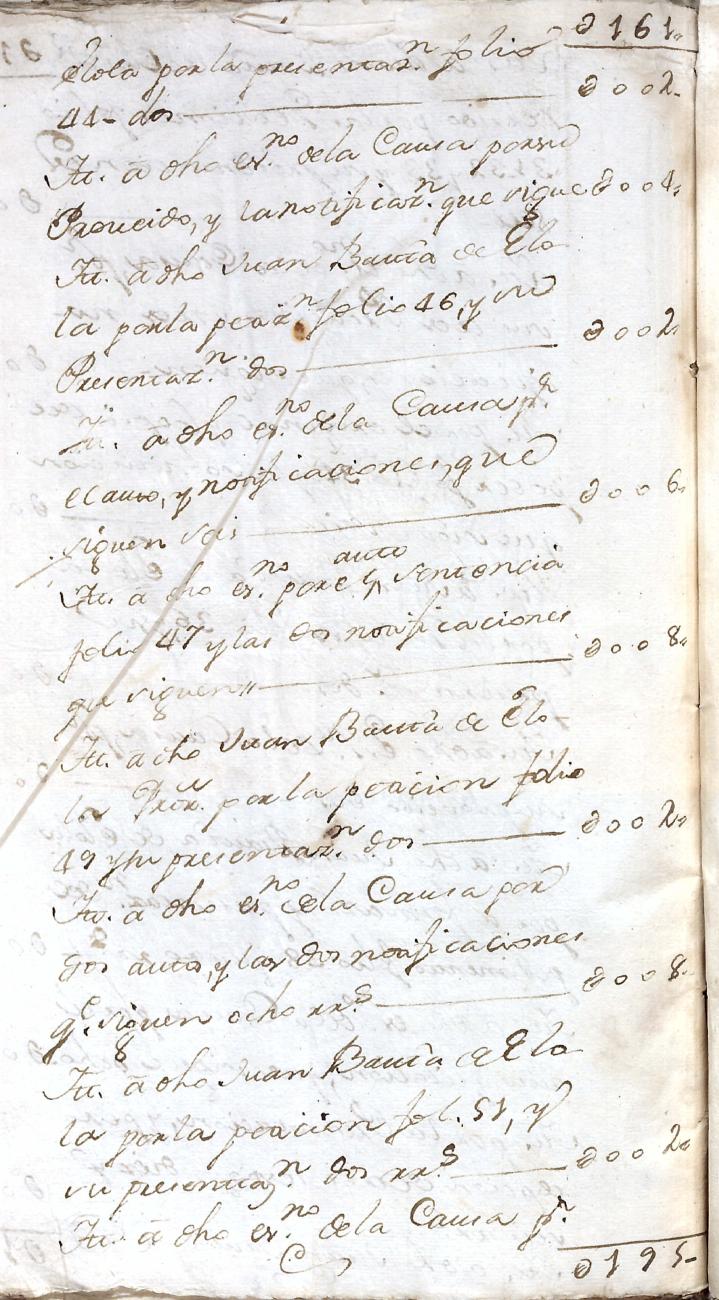 ∂161„
Elola por la presentaz.n folio
44- dos ∂002-
Itt. a dho es.no de la Causa por su
Proueido, y la notificaz.n que sigue ∂004„
Itt. a dho Juan Bauta de Elo
la por la petiz.n folio 46, y su
Presentaz.n dos ∂002„
Itt. a dho es.no de la Causa p.r
el auto, y notificaciones, que
siguen seis ∂006„
Itt. a dho es.no por el auto y sentencia
folio 47 y las dos notificaciones
que siguen„ ∂008„
Itt. a dho Juan Bauta de Elo
la Pror. por la peticion folio
49 y su presentaz.n dos ∂002„
Itt. a dho es.no de la Causa por
dos autos, y las dos notificaciones
q.e siguen ocho rr.s ∂008„
Itt. a dho Juan Bauta de Elo
la por la peticion fol. 51, y
su presentaz.n dos rr.s ∂002„
Itt. a dho es.no de la Causa p.r
∂195-